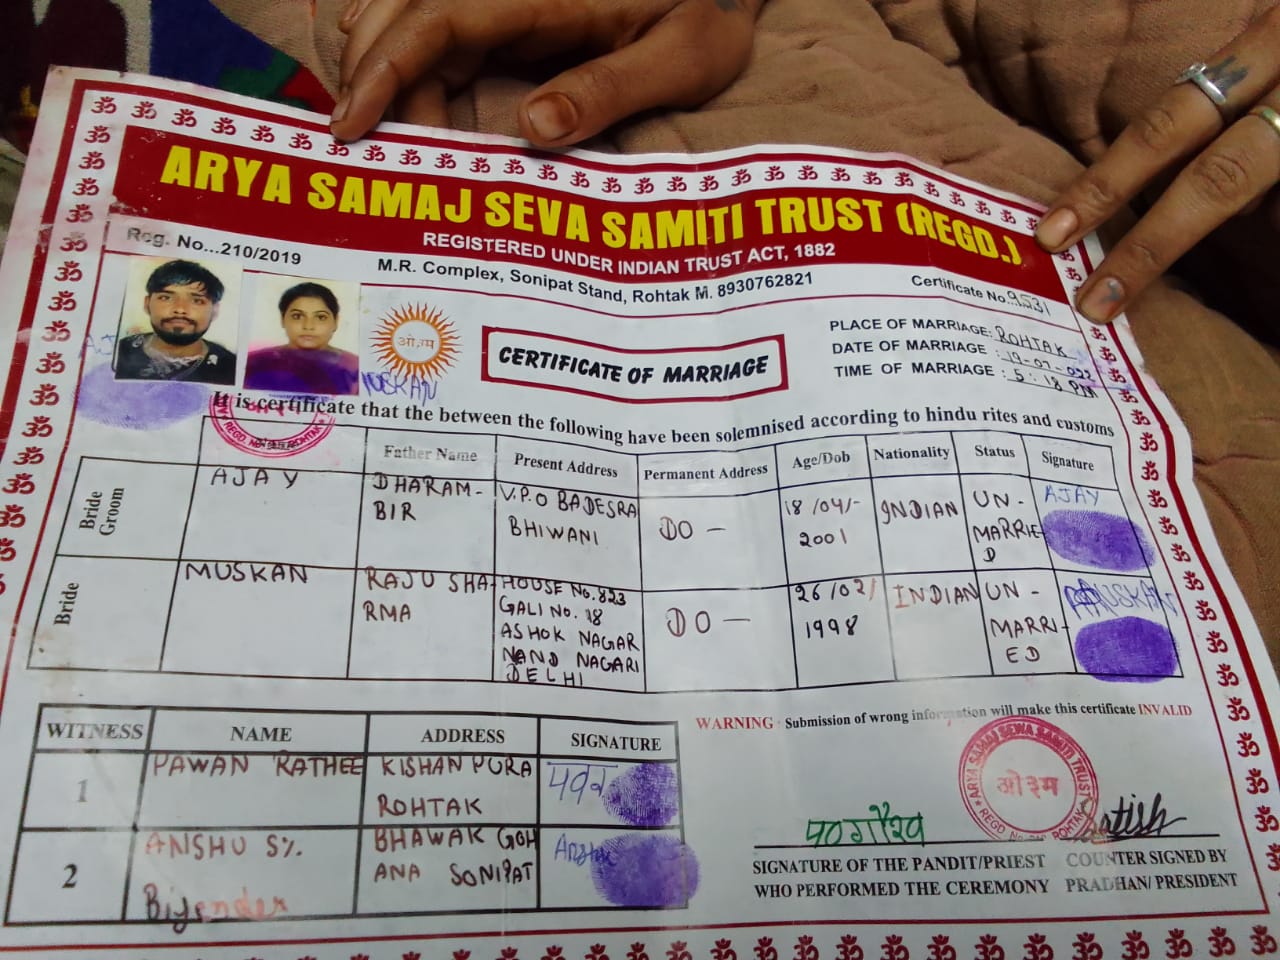 ARYA SAMAJ SEVA SAMITI TRUST (REGD.)
REGISTERED UNDER INDIAN TRUST ACT, 1882
Reg. No...210/2019
M.R. Complex, Sonipat Stand, Rohtak M. 8930762821
Certificate No. 9531
ओ३म्
MUSKAN
CERTIFICATE OF MARRIAGE
PLACE OF MARRIAGE: ROHTAK
DATE OF MARRIAGE : 19-07-022
TIME OF MARRIAGE : 5:18 PM
It is certificate that the between the following have been solemnised according to hindu rites and customs
Father Name Present Address Permanent Address Age/Dob Nationality Status Signature
Bride Groom
AJAY
DHARAM-
BIR
V.P.O BADESRA
BHIWANI
DO —
18/04/-
2001
INDIAN
UN-
MARRIE-
D
AJAY
Bride
MUSKAN
RAJU SHA-
RMA
HOUSE No. 823
GALI No. 18
ASHOK NAGAR
NAND NAGARI
DELHI
DO —
26/02/
1998
INDIAN
UN-
MARRI-
ED
MUSKAN
WITNESS NAME ADDRESS SIGNATURE
1
PAWAN RATHEE
KISHANPURA
ROHTAK
पवन
2
ANSHU S/.
Bijender
BHAWAK GOH
ANA SONIPAT
Anshu
WARNING : Submission of wrong information will make this certificate INVALID
ARYA SAMAJ SEWA SAMITI TRUST
ओ३म
REGD. No. ROHTAK
SIGNATURE OF THE PANDIT/PRIEST
WHO PERFORMED THE CEREMONY
COUNTER SIGNED BY
PRADHAN/ PRESIDENT